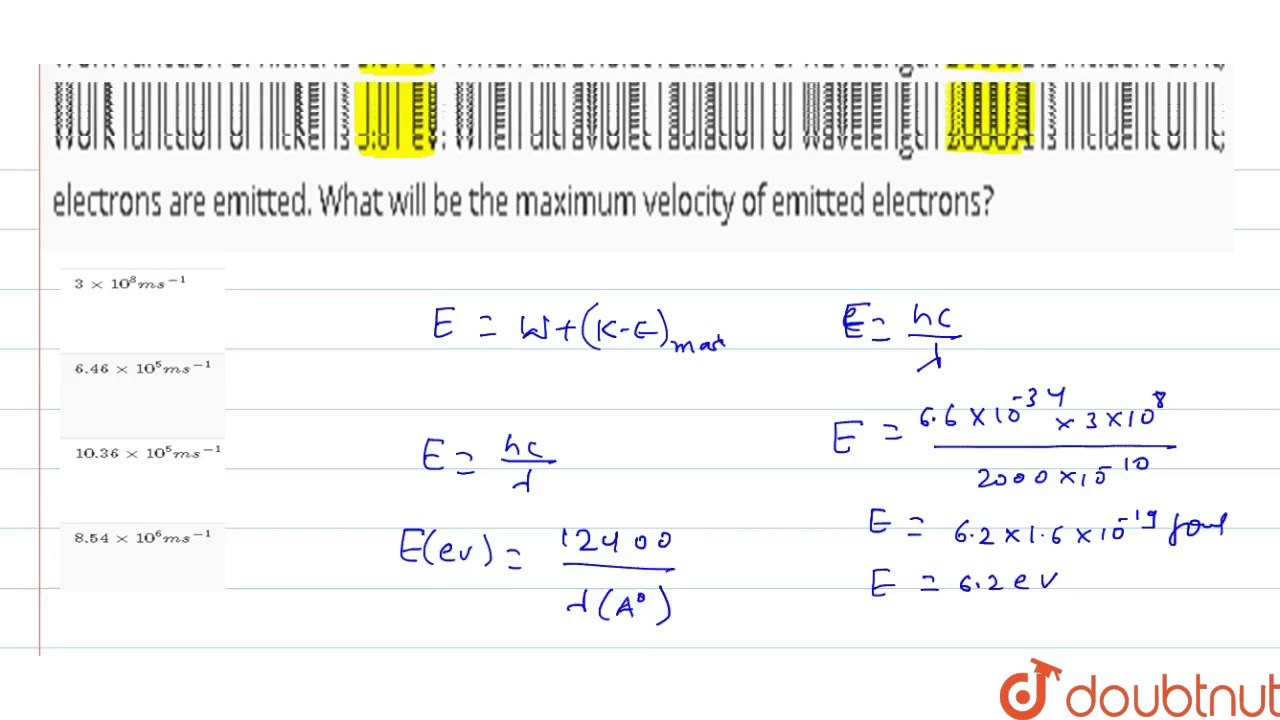 Work function of nickel is 5.01 eV. When ultraviolet radiation of wavelength 2000Å is incident on it,
electrons are emitted. What will be the maximum velocity of emitted electrons?
3 × 10⁸ms⁻¹
6.46 × 10⁵ms⁻¹
10.36 × 10⁵ms⁻¹
8.54 × 10⁶ms⁻¹
E = W+(K-E)max
E = hc/λ
E(ev) = 12400/λ(A°)
E = hc/λ
E = 6.6×10⁻³⁴ × 3×10⁸/2000×10⁻¹⁰
E = 6.2×1.6×10⁻¹⁹ Joul
E = 6.2 eV
doubtnut